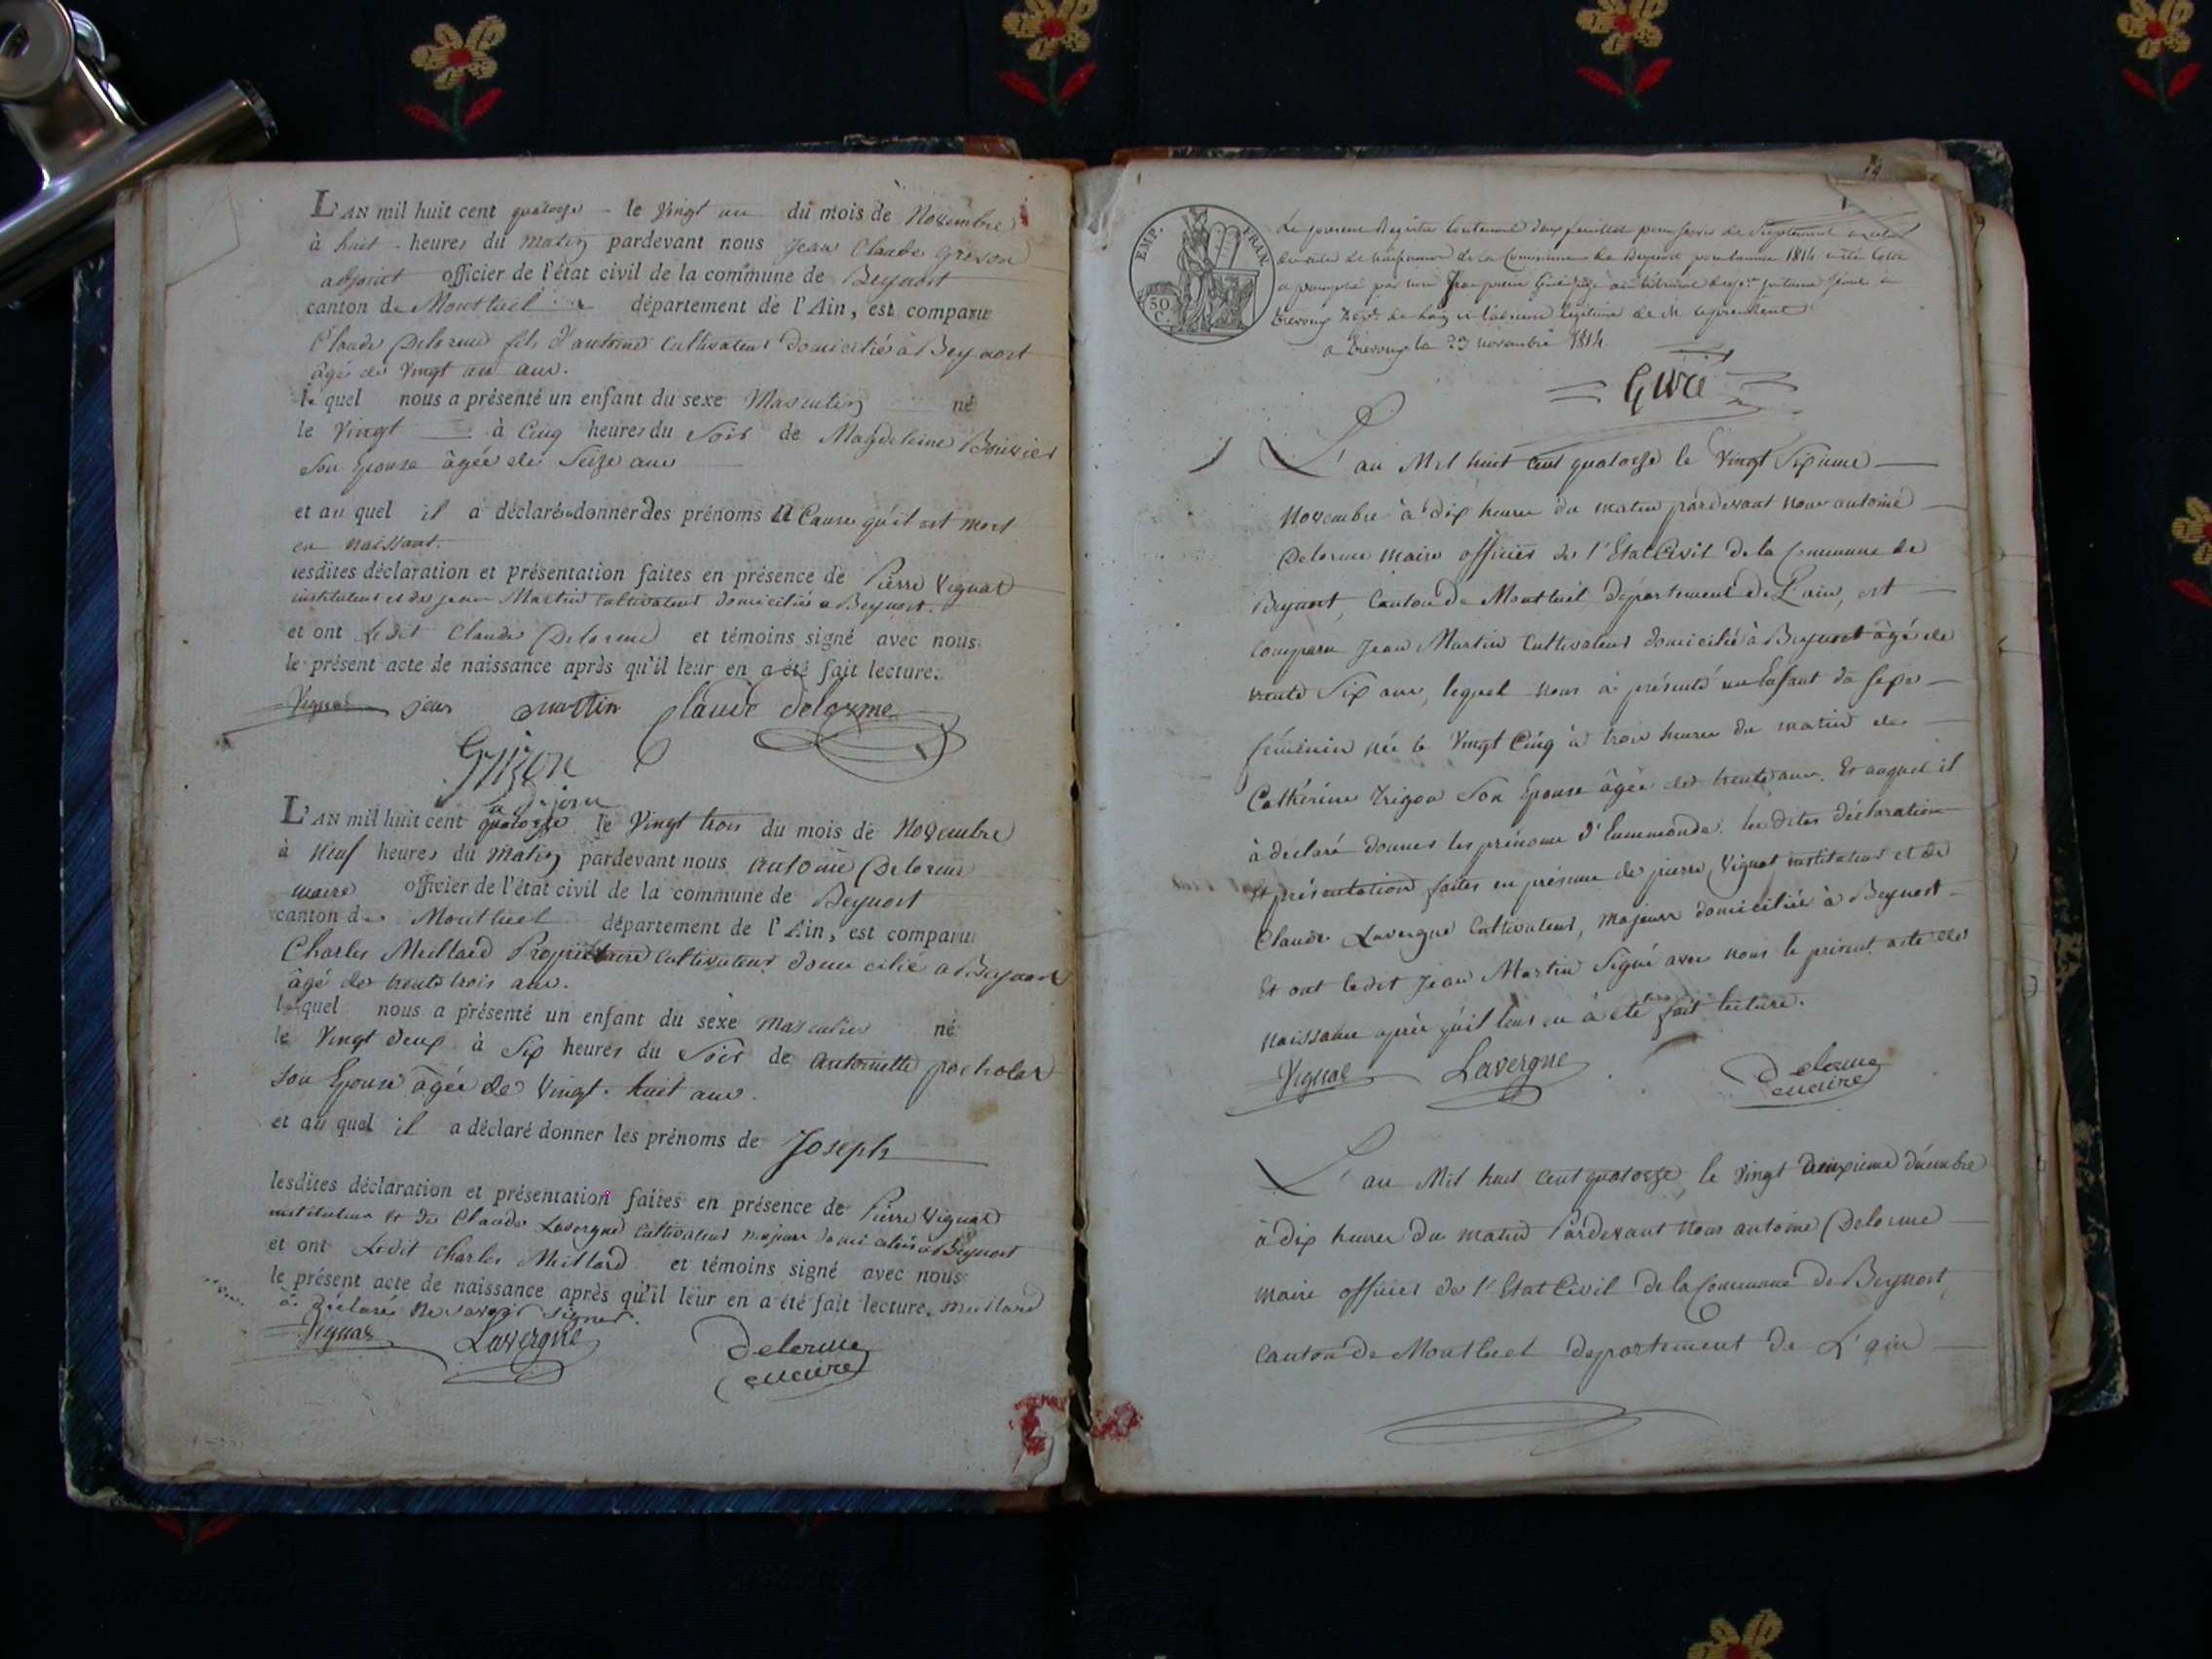 L'AN mil huit cent quatorze le vingt un du mois de Novembre
à huit heures du matin pardevant nous Jean Claude Grison
adjoint officier de l'état civil de la commune de Beynost
canton de Montluel département de l'Ain, est comparu
Claude Delorme fils d'antoine cultivateur domicilié à Beynost
âgé de vingt un ans.
le quel nous a présenté un enfant du sexe Masculin né
le vingt à Cinq heures du Soir de Magdeleine Bouvier
son Epouse âgée de Seize ans
et au quel il a déclaré donner des prénoms a Cause qu'il est mort
en naissant.
lesdites déclaration et présentation faites en présence de Pierre Vignat
instituteur et de jean Martin cultivateur domiciliés a Beynost.
et ont Ledit Claude Delorme et témoins signé avec nous
le présent acte de naissance après qu'il leur en a été fait lecture.
Vignat jean martin Claude delorme
Grizon
adjoin
L'AN mil huit cent quatorze le Vingt trois du mois de Novembre
à Neuf heures du Matin pardevant nous antoine Delorme
maire officier de l'état civil de la commune de Beynost
canton de Montluel département de l'Ain, est comparu
Charles Meillard Propriétaire Cultivateur domicilié a Beynost
âgé de trente trois ans.
lequel nous a présenté un enfant du sexe Masculin né
le Vingt deux à Six heures du Soir de antoinette pocholas
son Epouse âgée de Vingt huit ans.
et au quel il a déclaré donner les prénoms de Joseph
lesdites déclaration et présentation faites en présence de Pierre Vignat
instituteur et de Claude Lavergne cultivateur majeurs domiciliés a Beynost
et ont Ledit Charles Meillard et témoins signé avec nous
le présent acte de naissance après qu'il leur en a été fait lecture. meillard
a Déclaré Ne savoir signer.
Vignat Lavergne Delorme
maire
EMP. FRAN.
50 C.
Le present Registre Contenant deux feuilles pour servir de Supplement
de naissance de la Commune de Beynost pour l'année 1814 a été Cotté
a paraphé par nous
Trevoux
a Trevoux le 23 novembre 1814.
L'an Mil huit cent quatorze le Vingt Sixieme
Novembre à dix heures du matin pardevant nous antoine
Delorme maire officier de l'Etat Civil de la Commune de
Beynost, Canton de Montluel département de L'ain, est
comparu Jean Martin Cultivateur domicilié à Beynost âgé de
trente Six ans, lequel nous à présenté un Enfant du sexe
féminin née le Vingt Cinq à trois heures du matin de
Cathérine Trigon son Epouse âgée de trente ans. Et auquel il
à declaré donner les prénoms d'Enmonde. les dites déclaration
et présentation faites en présence de pierre Vignat instituteur et de
Claude Lavergne Cultivateur, majeurs domiciliés à Beynost
Et ont ledit Jean Martin Signé avec nous le présent acte de
naissance après qu'il leur en à été fait lecture.
Vignat Lavergne Delorme
maire
L'an Mil huit Cent quatorze, le Vingt deuxieme décembre
à dix heures du matin Pardevant Nous antoine Delorme
Maire officier de l'Etat Civil de la Commune de Beynost,
Canton de Montluel département de L'ain